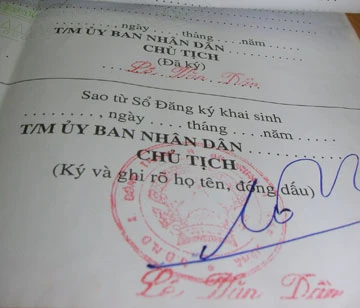 ........ngày......tháng......năm......
T/M ỦY BAN NHÂN DÂN..........
CHỦ TỊCH
(Đã ký)
Sao từ Sổ Đăng ký khai sinh
........, ngày......tháng......năm......
T/M ỦY BAN NHÂN DÂN..........
CHỦ TỊCH
(Ký và ghi rõ họ tên, đóng dấu)